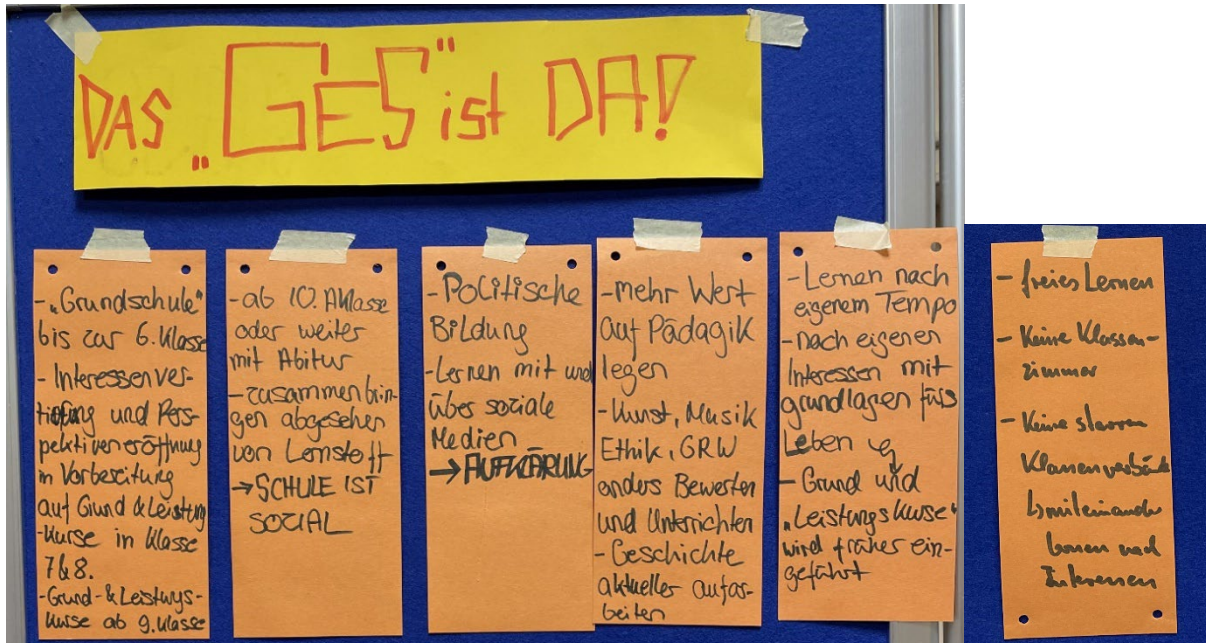 DAS „GES" ist DA!
-„Grundschule"
bis zur 6. Klasse
- Interessenver-
tiefung und Pers-
pektiveneröffnung
in Vorbereitung
auf Grund & Leistung
-Kurse in Klasse
7&8.
-Grund-&Leistungs-
kurse ab 9. Klasse
-ab 10. Klasse
oder weiter
mit Abitur
-zusammenbrin-
gen abgesehen
von Lernstoff
→SCHULE IST
SOZIAL
-Politische
Bildung
-Lernen mit und
über soziale
Medien
→AUFKÄRUNG
-mehr Wert
auf Pädagik
legen
-Kunst, Musik
Ethik, GRW
anders Bewerten
und Unterrichten
-Geschichte
aktueller aufar-
beiten
-Lernen nach
eigenem Tempo
-nach eigenen
Interessen mit
grundlagen fürs
Leben
- Grund und
„Leistungskurse"
wird früher ein-
geführt
- freies Lernen
- Keine Klassen-
zimmer
- Keine starren
Klassenverbände
miteinander
lernen nach
Interessen